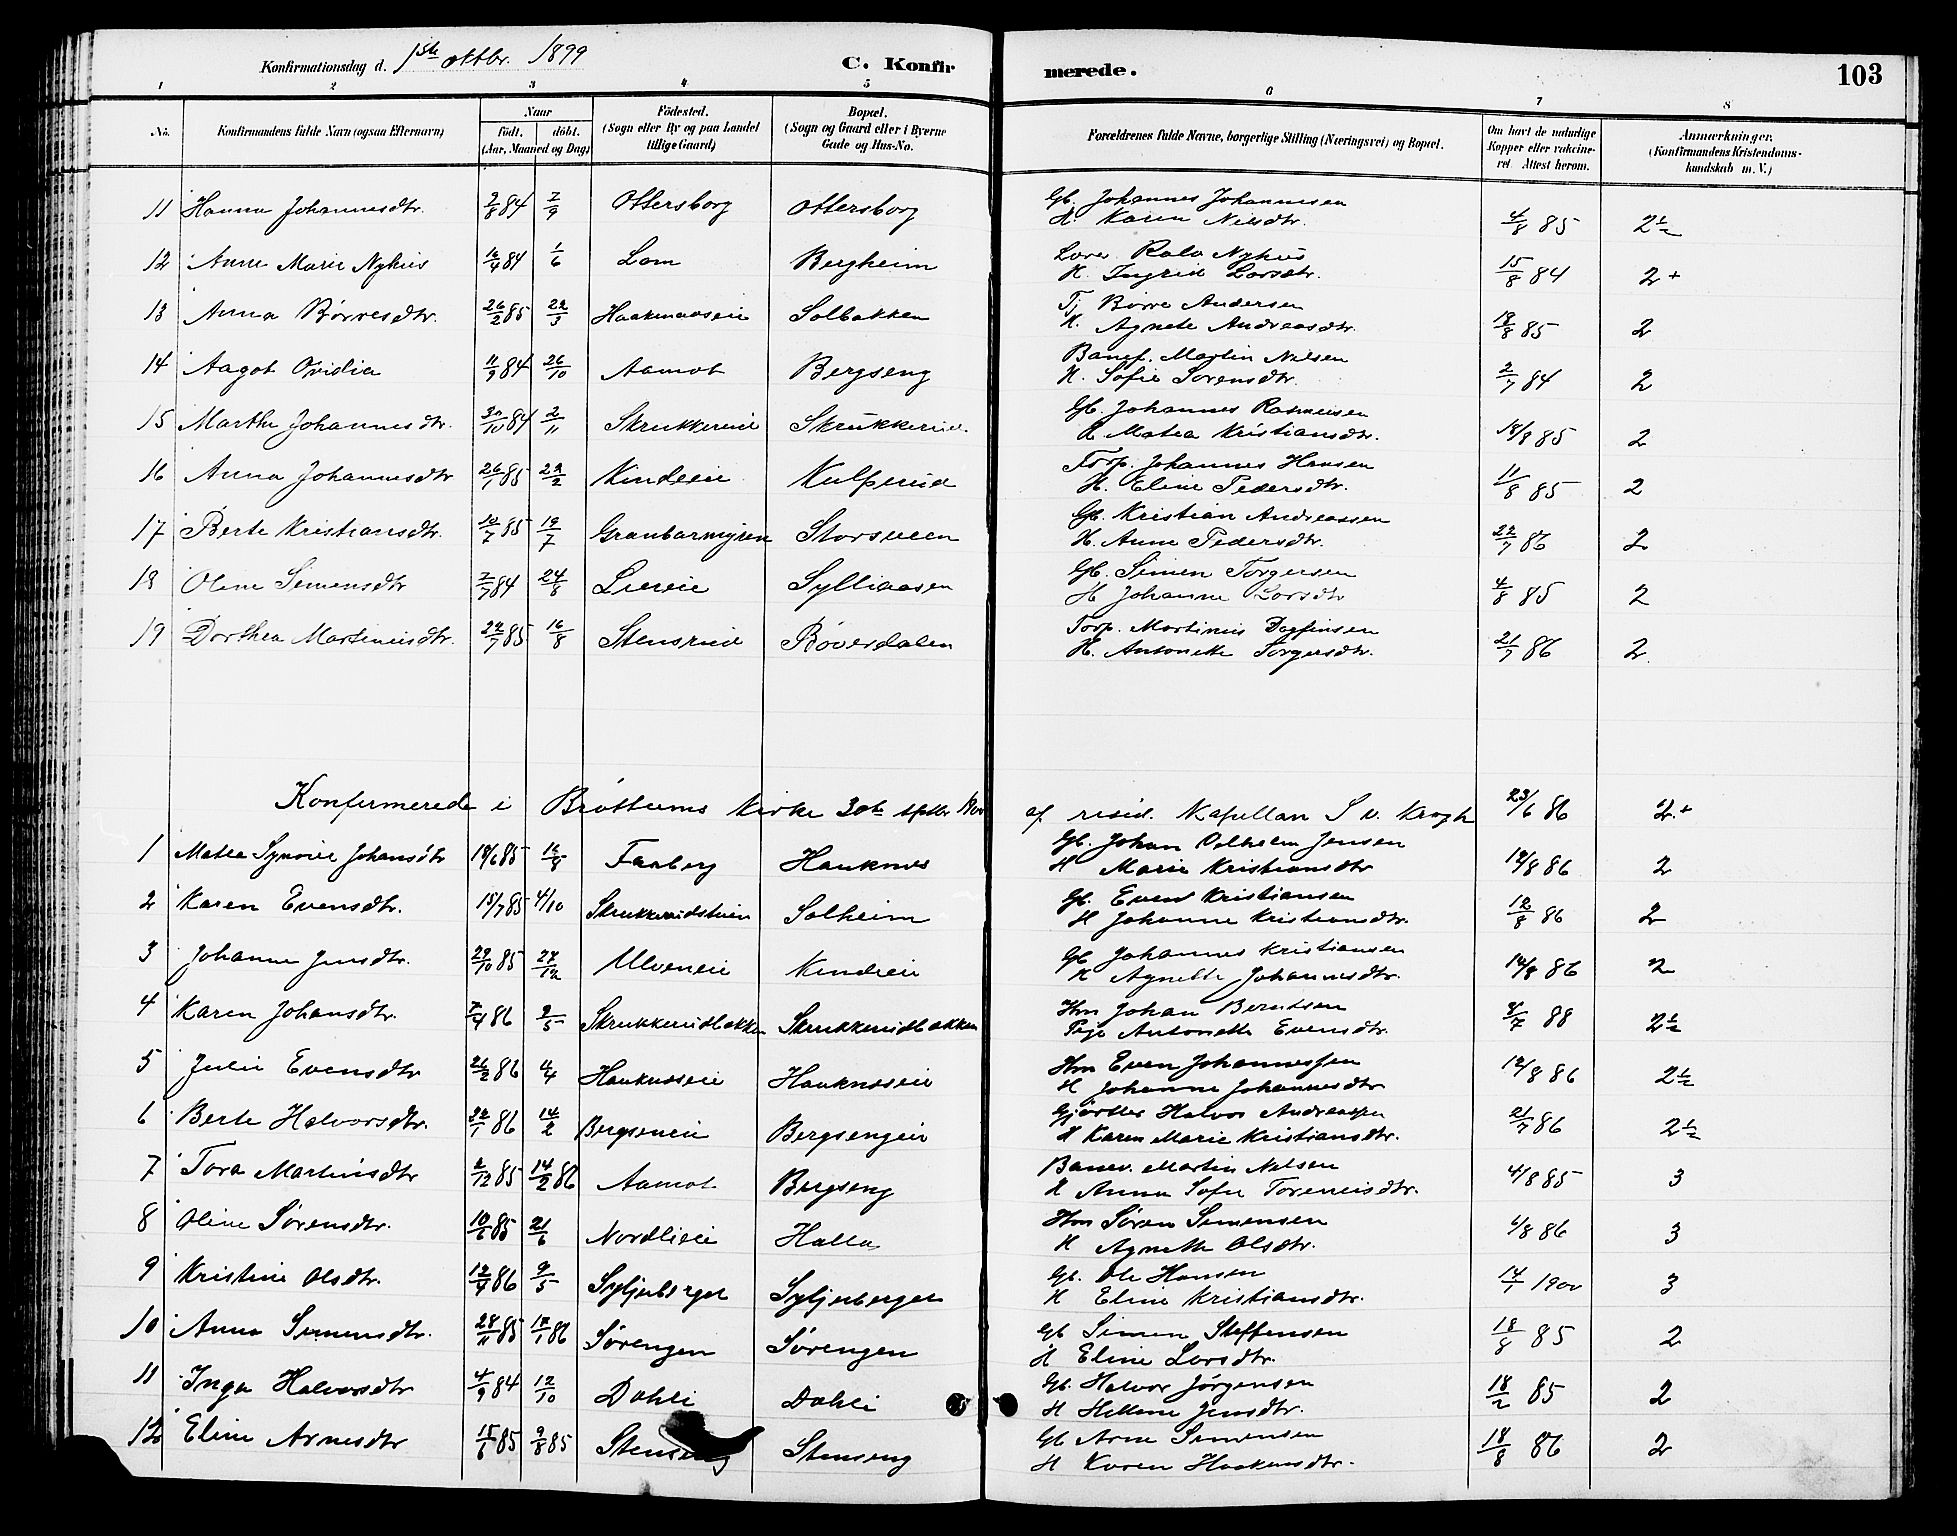 Konfirmationsdag d. 1ste oktbr. 1899 C. Konfirmerede. 103
1 2 3 4 5 6 7 8
No. Konfirmandens fulde Navn (ogsaa Efternavn) Naar født. døbt. (Aar, Maaned og Dag) Födested. (Sogn eller By og paa Landet tillige Gaard) Bopæl. (Sogn og Gaard eller i Byerne Gade og Hus-No. Forældrenes fulde Navne, borgerlige Stilling (Næringsvei) og Bopæl. Om havt de naturlige Kopper eller vaccineret Attest herom. Anmærkninger. (Konfirmandens Kristendomskundskab m. V.)
11 Hanna Johannesdtr. 9/8 84 7/9 Ottersborg Ottersborg Gb. Johannes Johannesen
H. Karen Nilsdtr. 4/8 85 2½
12 Anne Marie Nyhus 16/4 84 1/6 Lom Bergheim Nyhus
H. Ingrid Larsdtr. 15/8 84 2+
13 Anna Børresdtr. 26/2 85 22/3 Solbakken Tj Børre Andersen
H. Agnete Andreasdtr. 18/8 85 2
14 Aagot Ovidia 11/9 84 26/10 Aamot Bergseng Martin Nilsen
H. Sofie Sorensdtr. 2/7 84 2
15 Marthe Johannesdtr. 30/10 84 2/11 Skrukkerud Skrukkerud. Gb. Johannes Rasmusen
H Matea Kristiansdtr. 18/8 85 2
16 Anna Johannesdtr 26/1 85 22/2 Kindeie Kulperud Torp. Johannes Hansen
H. Eline Pedersdtr. 11/8 85 2
17 Berte Kristiansdtr. 10/7 85 19/7 Granbarmyren Storsveen Gb. Kristian Andreassen
H. Anne Pedersdtr. 22/7 86 2
18 Oline Simensdtr 7/7 84 24/8 Liereie Sylliaasen Gb. Simen Torgersen
H Johanne Larsdtr 4/8 85 2
19 Dorthea Martinusdtr. 24/7 85 16/8 Stensrud Bøverdalen Torp. Martinus Dagfinsen
H. Antonette Torgersdtr. 21/7 86 2.
Konfirmerede i Brøttums Kirke 30te sptbr 1900 af resid. Kapellan S v. Krogh 23/6 86 2+
1 Matea Synøve Johansdtr 18/6 85 16/8 Faaberg Hauknes Gb. Johan Vilhelm Jensen
H Marie Kristiansdtr 12/8 86 2
2 Karen Evensdtr. 15/7 85 4/10 Skrukkerudstuen Solheim Gb. Even Kristiansen
H Johanne Kristiansdtr. 12/8 86 2
3 Johanne Jensdtr. 29/10 85 27/12 Ulveneie Kindeie Gb Johannes Kristiansen
H Agnethe Johannesdtr. 14/8 86 2
4 Karen Johansdtr. 7/4 86 9/5 Skrukkerudbakken Skrukkerudbakken Hm Johan Berntsen
Pige Antonette Evensdtr. 88 2½
5 Julie Evensdtr 26/2 86 4/4 Hauknæseie Hauknæseie Hm Even Johannessen
H Johanne Johannesdtr 12/8 86 2½
6 Berte Halvorsdtr. 22/1 86 14/2 Bergseneie Bergsengeie Gjørtler Halvor Andreassen
H Karen Marie Kristiansdtr. 21/7 86 2½
7 Tora Martinsdtr 2/12 85 14/2 86 Aamot Bergseng Banev. Martin Nilsen
H Anna Sofie Toreniusdtr. 4/8 85 3
8 Oline Sørensdtr. 10/6 85 21/6 Nordlieie Halla Hm Søren Simensen
H Agnethe Olsdtr. 6/8 86 3
9 Kristine Olsdtr. 12/4 86 9/5 Syljuberget Syljuberget Gb. Ole Hansen
H Eline Kristiansdtr. 14/1 1900 3
10 Anna Simensdtr. 28/11 85 17/1 86 Sørengen Sørengen Gb Simen Steffensen
H Eline Larsdtr. 18/8 85 2
11 Inga Halvorsdtr 4/9 84 12/10 Dahli Dahli Gb. Halvor Jørgensen
H Hellene Jensdtr. 18/2 85 2
12 Eline Arnesdtr 15/6 85 9/8 85 Stenseng Stenseng Gb Arne Simensen
H Karen Haakensdtr. 18/8 86 2